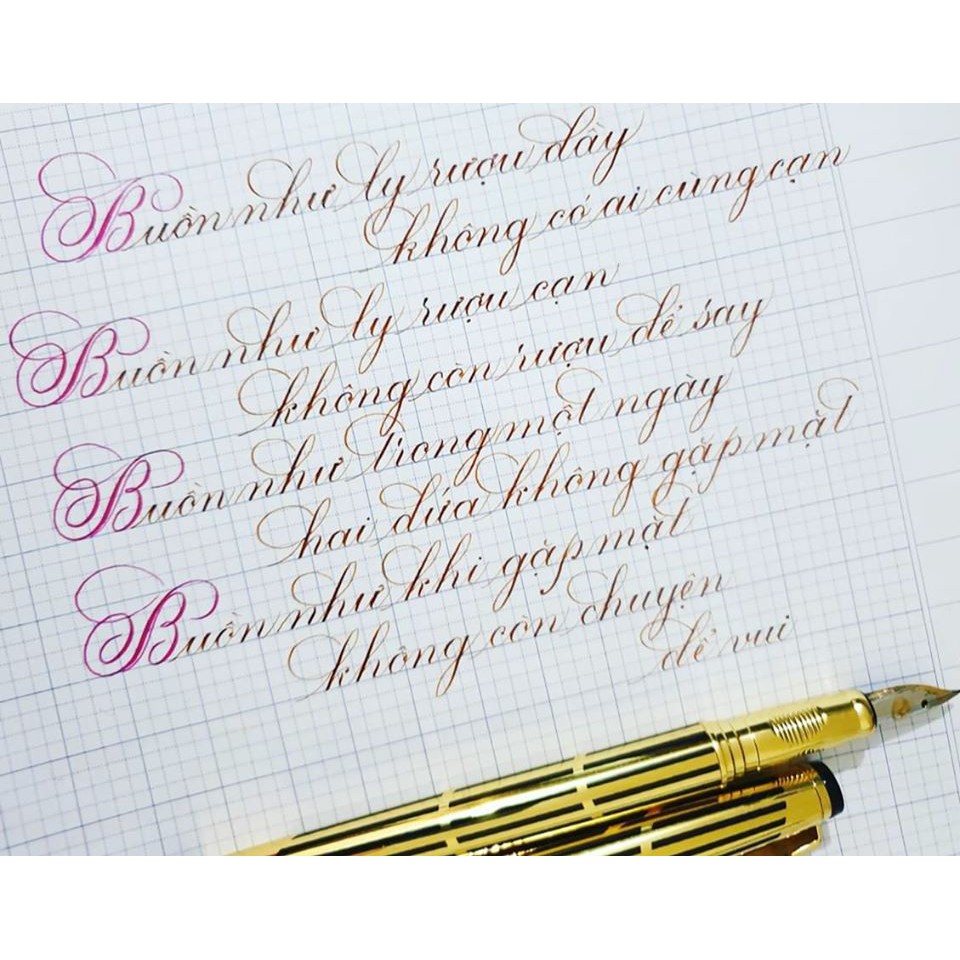 Buồn như ly rượu đầy
không có ai cùng cạn
Buồn như ly rượu cạn
không còn rượu để say
Buồn như trong một ngày
hai đứa không gặp mặt
Buồn như khi gặp mặt
không còn chuyện
để vui